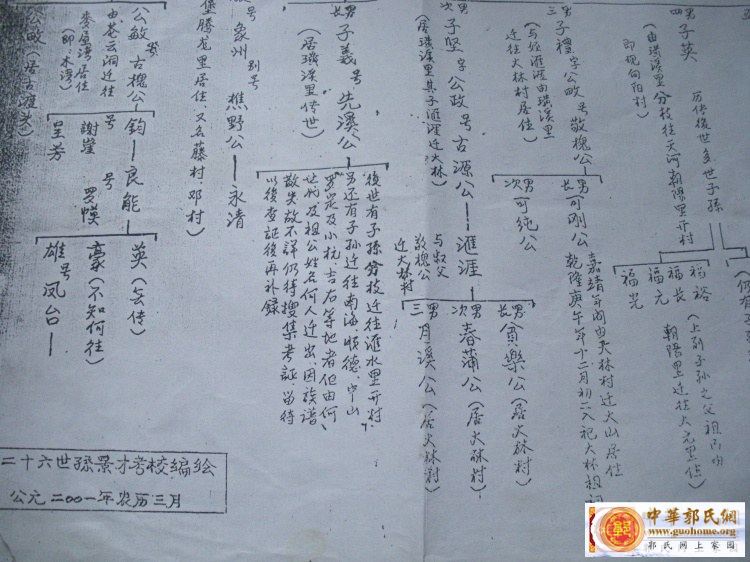 四男
子英
(由璜溪里分枝往天河朝阳里开村
即现向阳村)
历传後世多世子孫
福裕
福長
福元
福光
(上列子孙之父祖
朝陽里迁往大元里住)
三男
子禮 字公畋 号敬槐公
(与侄滙涯由璜溪里
迁往大林村居住)
長男 可刚公
次男 可纯公
嘉靖年间由大林村迁火山居住
乾隆庚午年十二月初二入祀大林祖祠
次男
子坚 字公政 号古源公—滙涯
(居璜溪里其子滙涯迁大林)
与叔父
敬槐公
迁大林村
長男 貧樂公 (居大林村)
次男 春蒲公 (居大林村)
三男 月溪公 (居大林村)
長男
子義 号先溪公
(居璜溪里传世)
後世有子孫分枝迁往滙水里开村,
另还有子孙迁往南海、顺德、中山
罗定及小杭、吉右等地者但由何
世代及祖公姓名何人迁出,因族谱
散失故不詳仍待搜集考証留待
以後查証後再补録
号象州 别号樵野公—永清
堡腾龙里居住,又名藤村,邓村)
公敏 号古槐公
由苍云洞迁往
(即木湾)
钧—良能
号謝堂
号罗幙
呈芳
英 (玄传)
豪 (不知何往)
雄 号凤台—
公畋 (居古渡头)
二十六世孫景才考校編絵
公元二00一年农历三月
中華郭氏網
http://www.guohome.org
郭氏网上家园